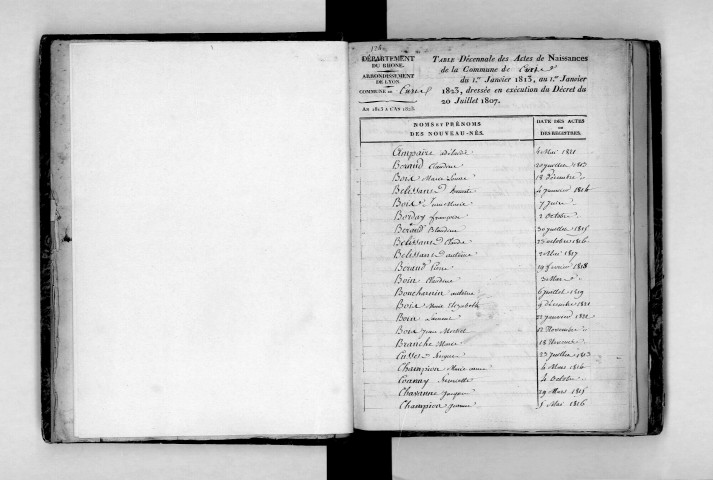 DÉPARTEMENT
DU RHONE.
ARRONDISSEMENT
DE LYON.
COMMUNE DE
AN 1813 A L'AN 1823.
TABLE Décennale des Actes de Naissances
de la Commune de
du 1.er Janvier 1813, au 1.er Janvier
1823, dressée en exécution du Décret du
20 Juillet 1807.
NOMS ET PRÉNOMS
DES NOUVEAU-NÉS.
DATE DES ACTES
OU
DES REGISTRES.
Ampaire 4 Mai 1821
Beraud Claudine 20 juillet 1813
Boix Marie Louise 18 Décembre
Belissant 4 janvier 1816
Boix Jeanne Marie 7 Juin
Borday françoise 2 Octobre
Beraud Claudine 30 juillet 1815
Belissant Claude 25 octobre 1816
Belissant antoine 2 Mai 1817
Beraud Pierre 19 février 1818
Boin Claudine 3 Mars
Bouchanin antoine 6 juillet 1819
Boix Marie Elizabeth 9 Décembre 1821
Boin Laurent 22 janvier 1822
Boix Jean Michel 12 Novembre
Branche Marie 18
Cusset 27 juillet 1813
Champion Marie anne 6 Mars 1816
4 Octobre
Chavanne Jacques 29 Mars 1815
Champion Jeanne 1 Mai 1816